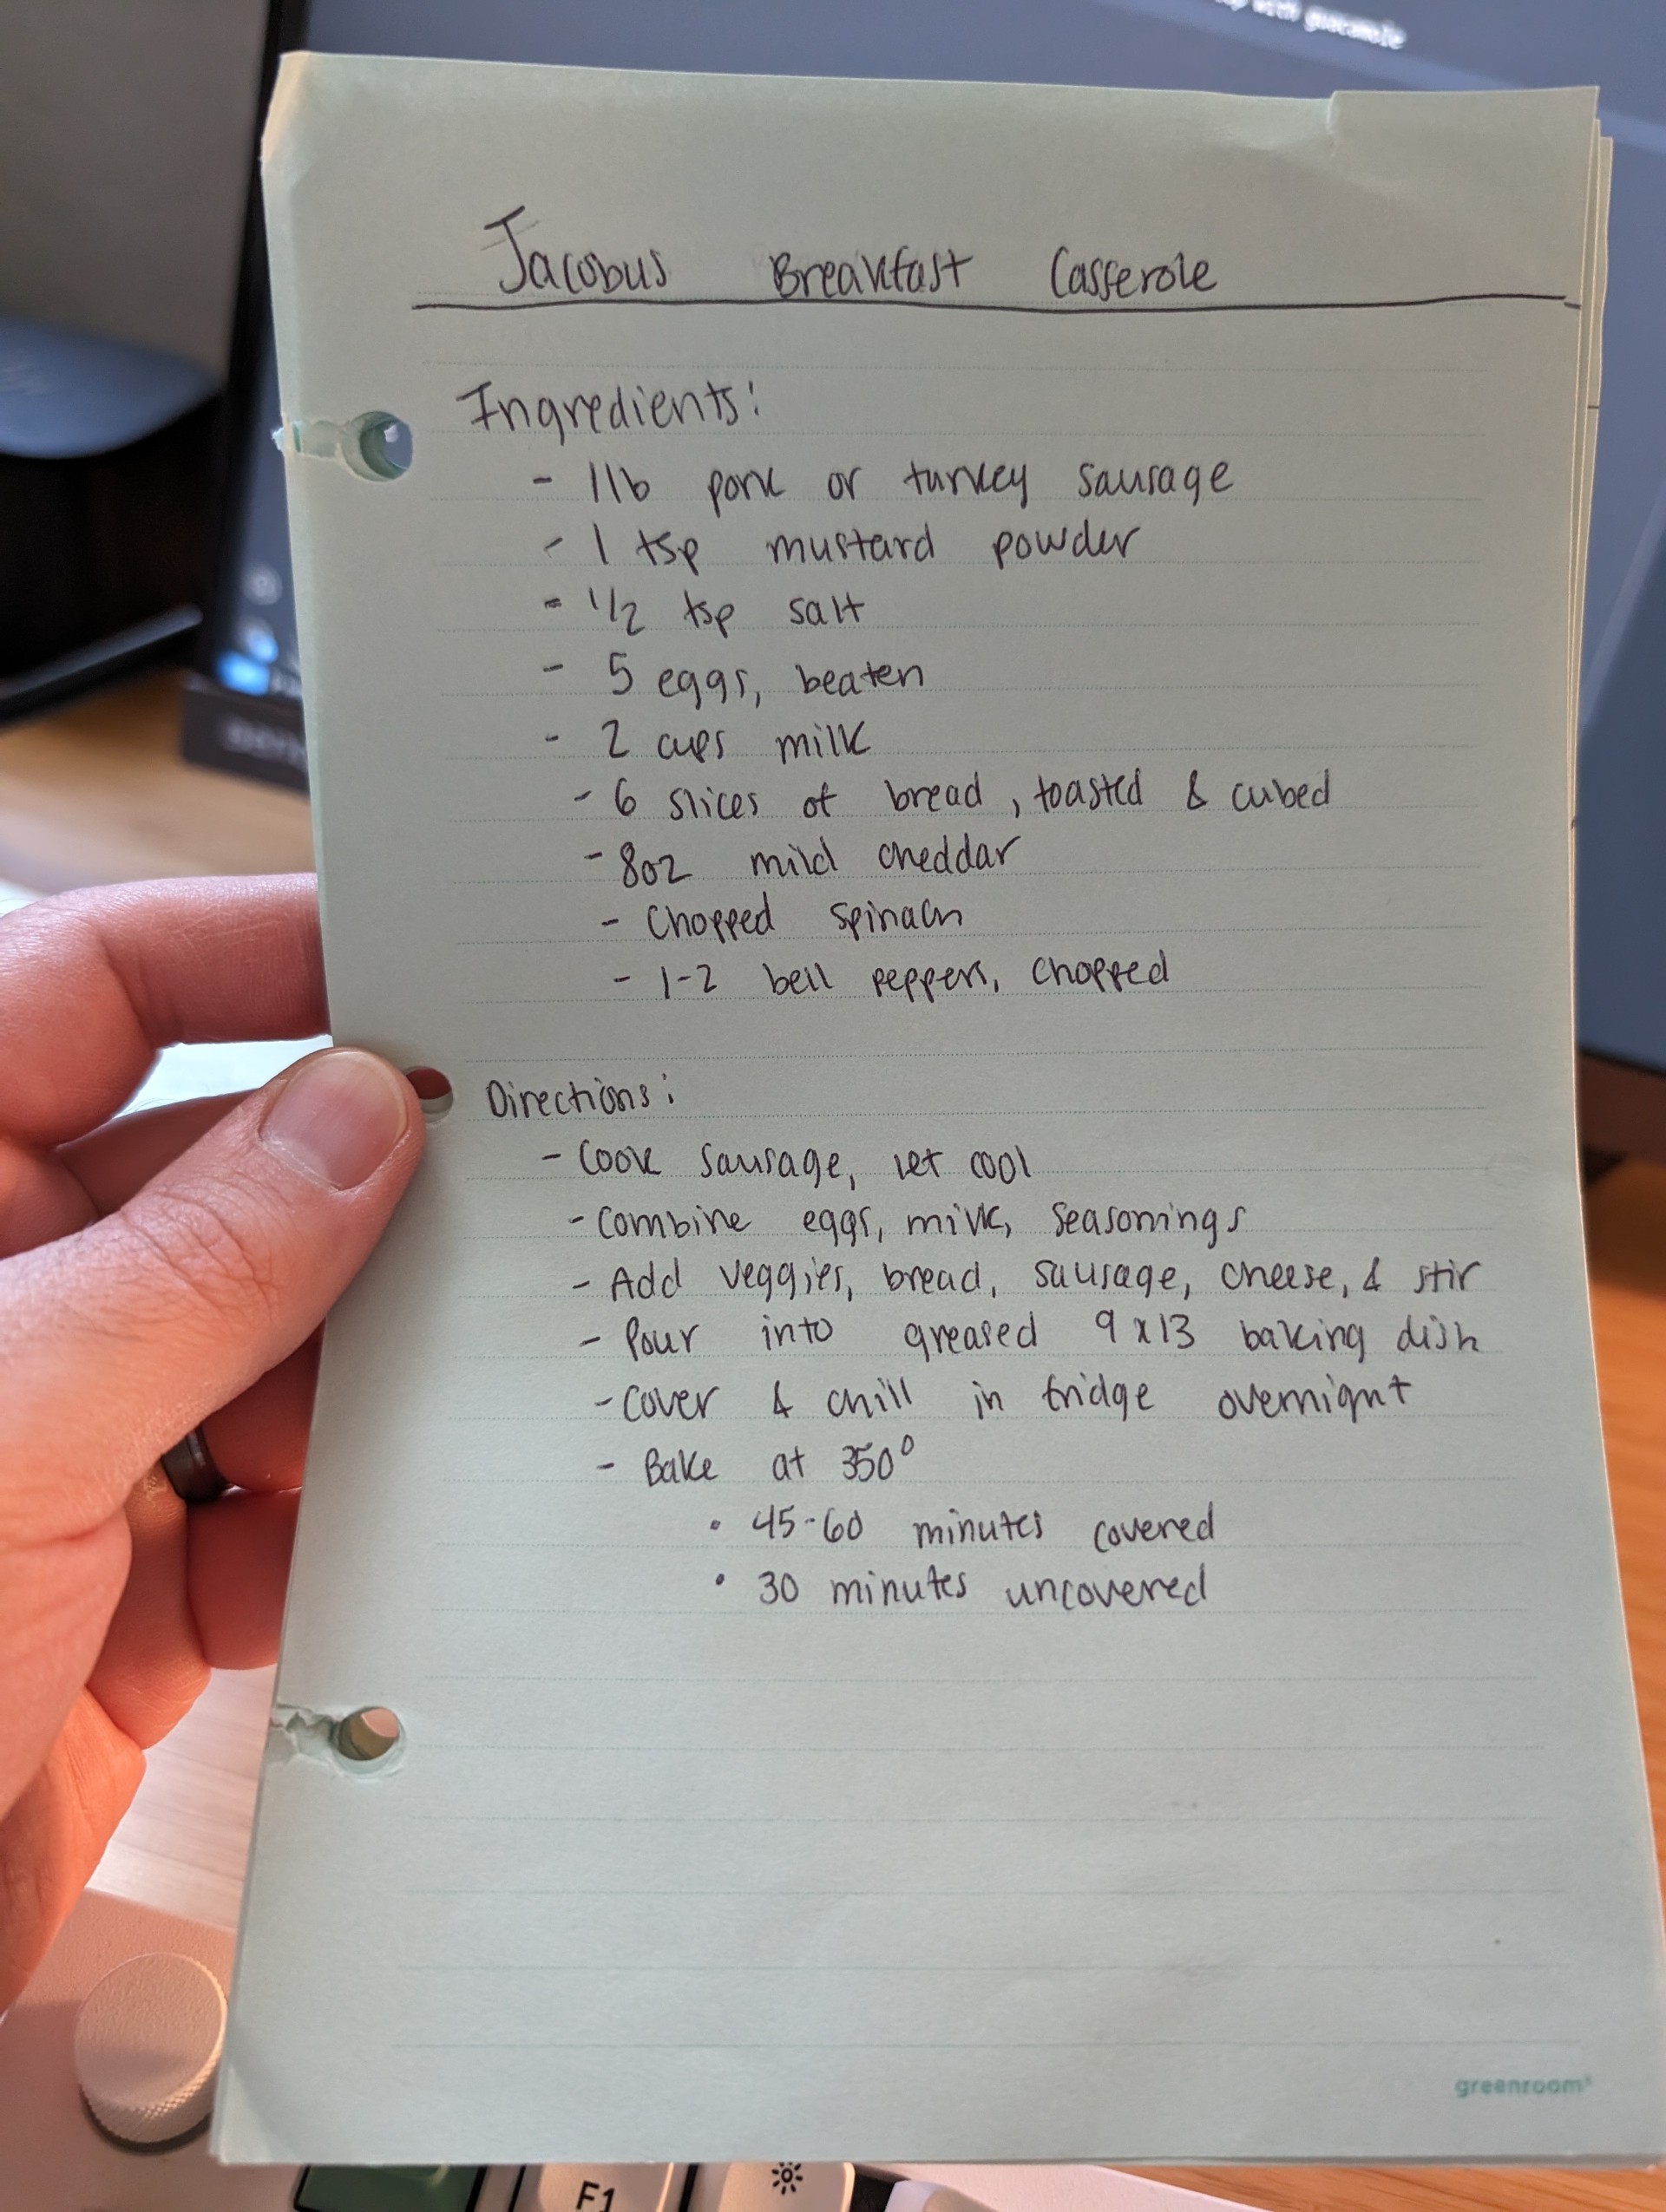 with guacamole
Jacobus Breakfast Casserole
Ingredients:
- 1lb pork or turkey sausage
- 1 tsp mustard powder
- 1/2 tsp salt
- 5 eggs, beaten
- 2 cups milk
- 6 slices of bread, toasted & cubed
- 8oz mild cheddar
- Chopped spinach
- 1-2 bell peppers, chopped
Directions:
- Cook sausage, let cool
- Combine eggs, milk, seasonings
- Add veggies, bread, sausage, cheese, & stir
- Pour into greased 9x13 baking dish
- Cover & chill in fridge overnight
- Bake at 350°
• 45-60 minutes covered
• 30 minutes uncovered
greenroom®
F1